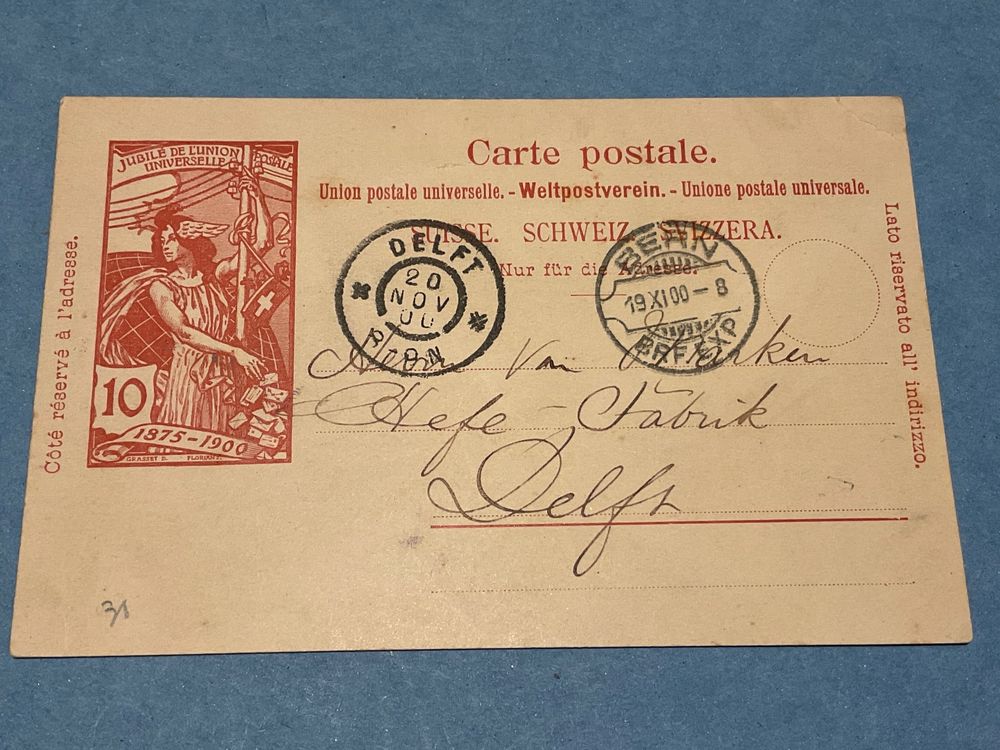 JUBILÉ DE L'UNION POSTALE
UNIVERSELLE
Carte postale.
Union postale universelle. - Weltpostverein. - Unione postale universale.
SUISSE. SCHWEIZ. SVIZZERA.
Nur für die Adresse.
Côté réservé à l'adresse.
Lato riservato all' indirizzo.
25
10
1875-1900
GRASSET D. FLORIAN
DELFT
20
NOV
00
8-9N
BERN
19 XI 00 - 8
BRF. EXP
Van
Hefe - Fabrik
Delft
31